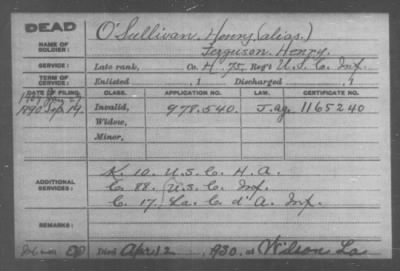 DEAD
NAME OF SOLDIER: O'Sullivan, Henry (alias)
Ferguson, Henry.
SERVICE: Late rank, Co. H, 75 Reg't U.S.C. Inf.
TERM OF SERVICE: Enlisted , 1 Discharged , 1
DATE OF FILING. CLASS. APPLICATION NO. LAW. CERTIFICATE NO.
1890 Sep. 19. Invalid, 978.540. J.ag. 1165240
Widow,
Minor,
K. 10. U.S.C. H.A.
ADDITIONAL SERVICES: C. 88. U.S.C. Inf.
C. 17. La. C. d'A. Inf.
REMARKS:
Died Apr 12 1930. at Wilson La